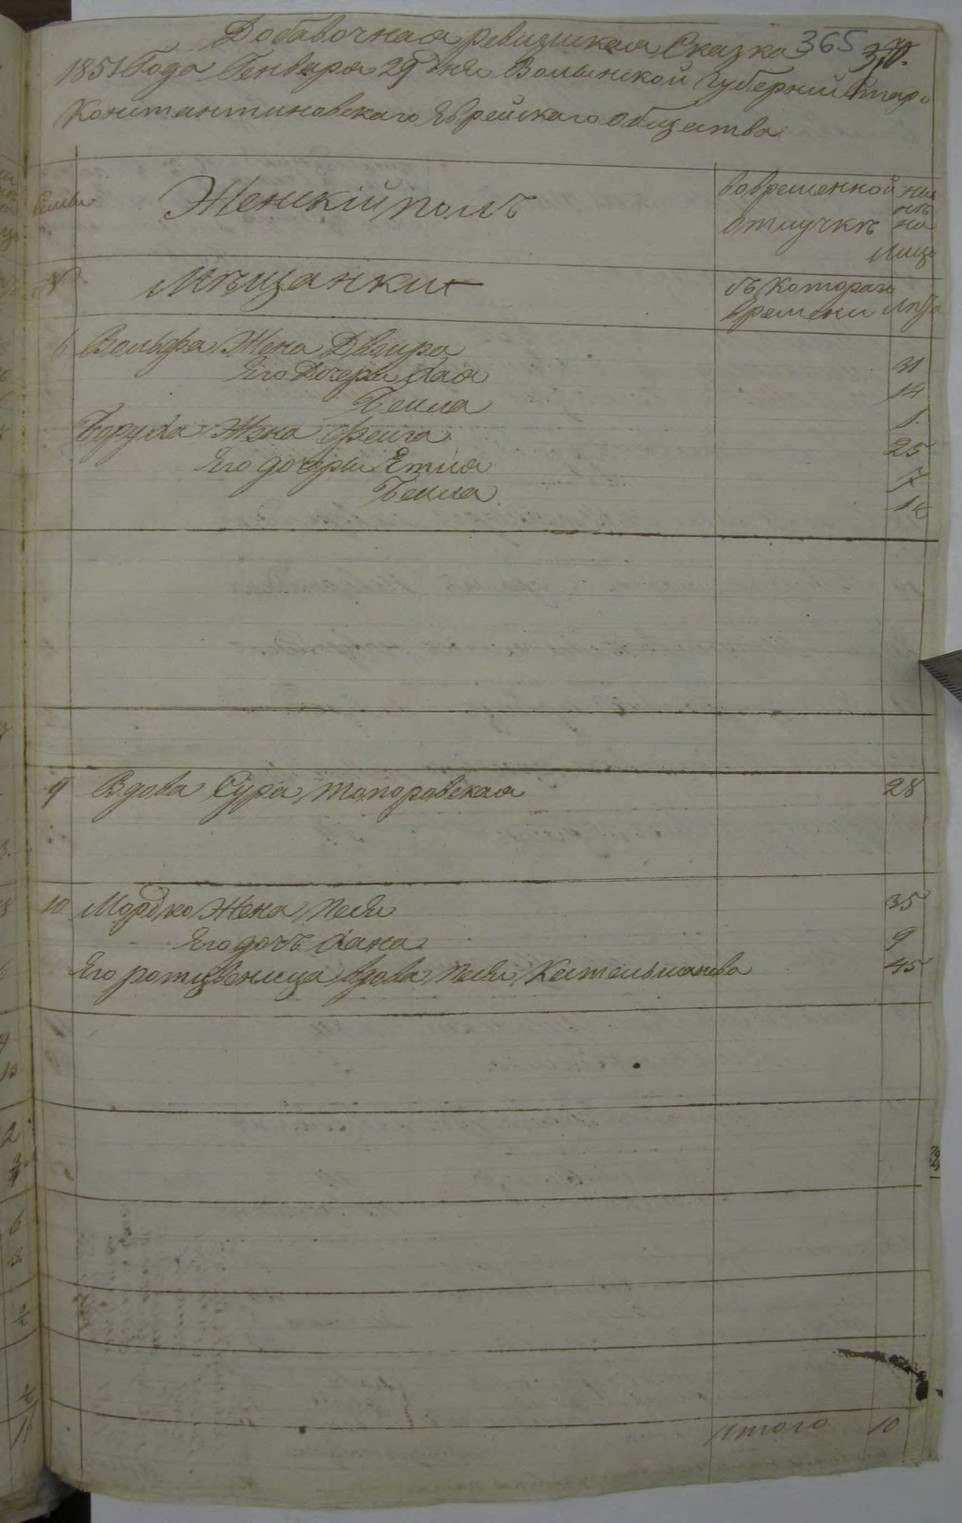 Добавочная ревизская Сказка 365
1851 Года Генваря 29 дня Волынской Губернии Старо
Константиновскаго Еврейскаго общества
Женскій полъ
Вовременной
отлучкѣ
на
лицо
Мѣщанки
Съ котораго
времени
лѣта
6 Вольфа Жена Двоира 31
Его Дочери Хая 14
Бейла 1
Боруха Жена Фейга 25
Его дочери Етля 7
Бейла
9 Вдова Сура Топоровская 28
10 Мордко Жена Песя 35
Его дочь Хана 9
Его ротственица вдова Песя Кательманова 45
Итого 10